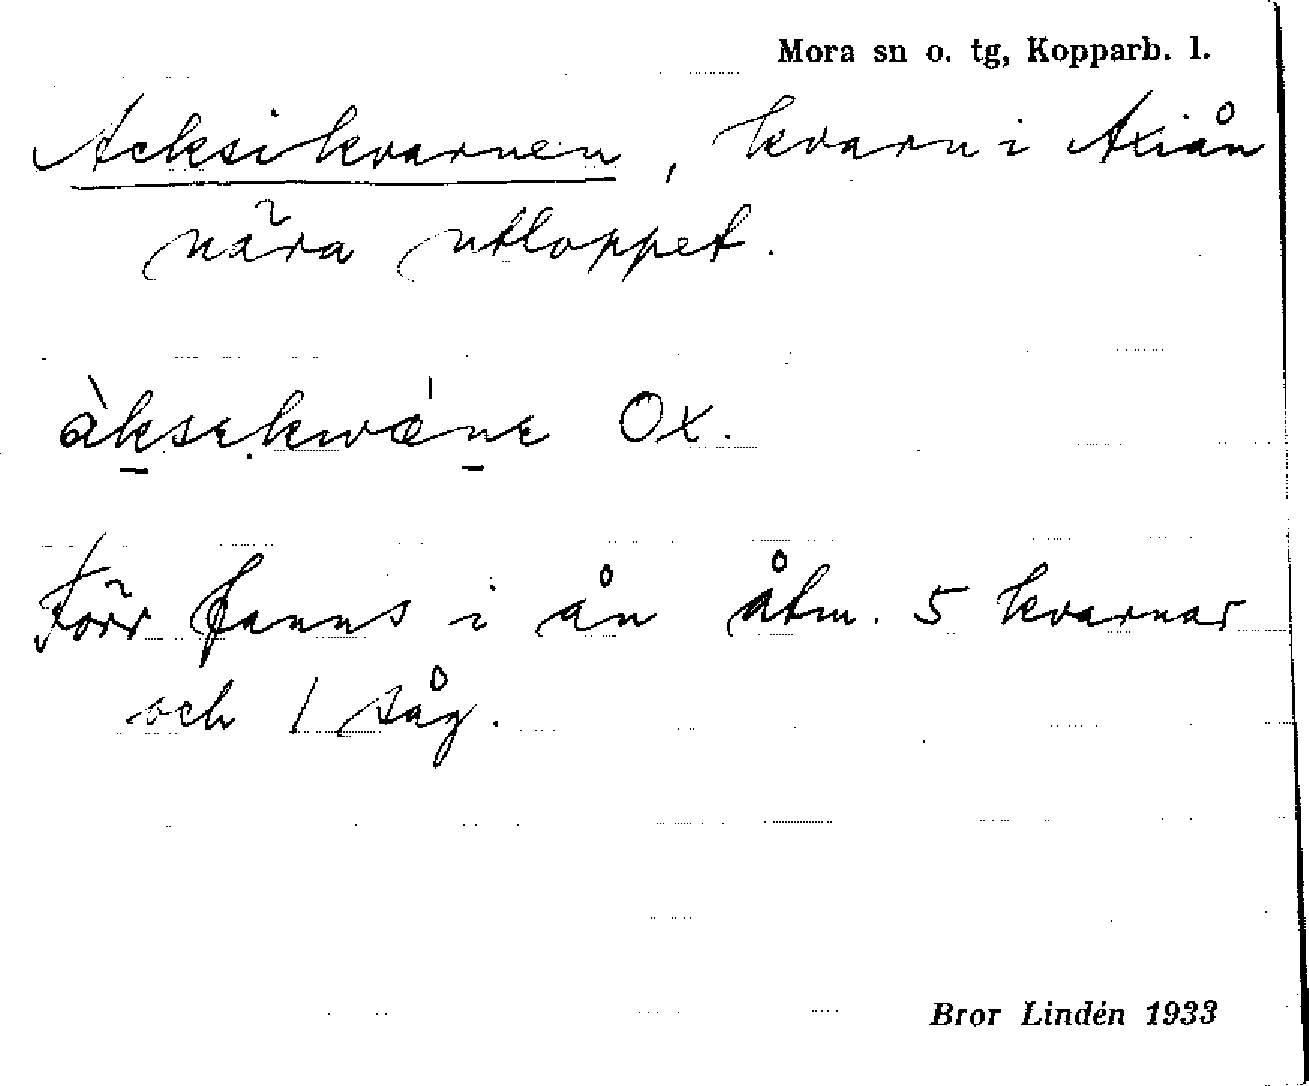 Mora sn o. tg, Kopparb. l.
Acksikvarnen, kvarn i Axiån
nära utloppet.
àksekwǽne Ox.
Förr fanns i ån åtm. 5 kvarnar
och 1 såg.
Bror Lindén 1933